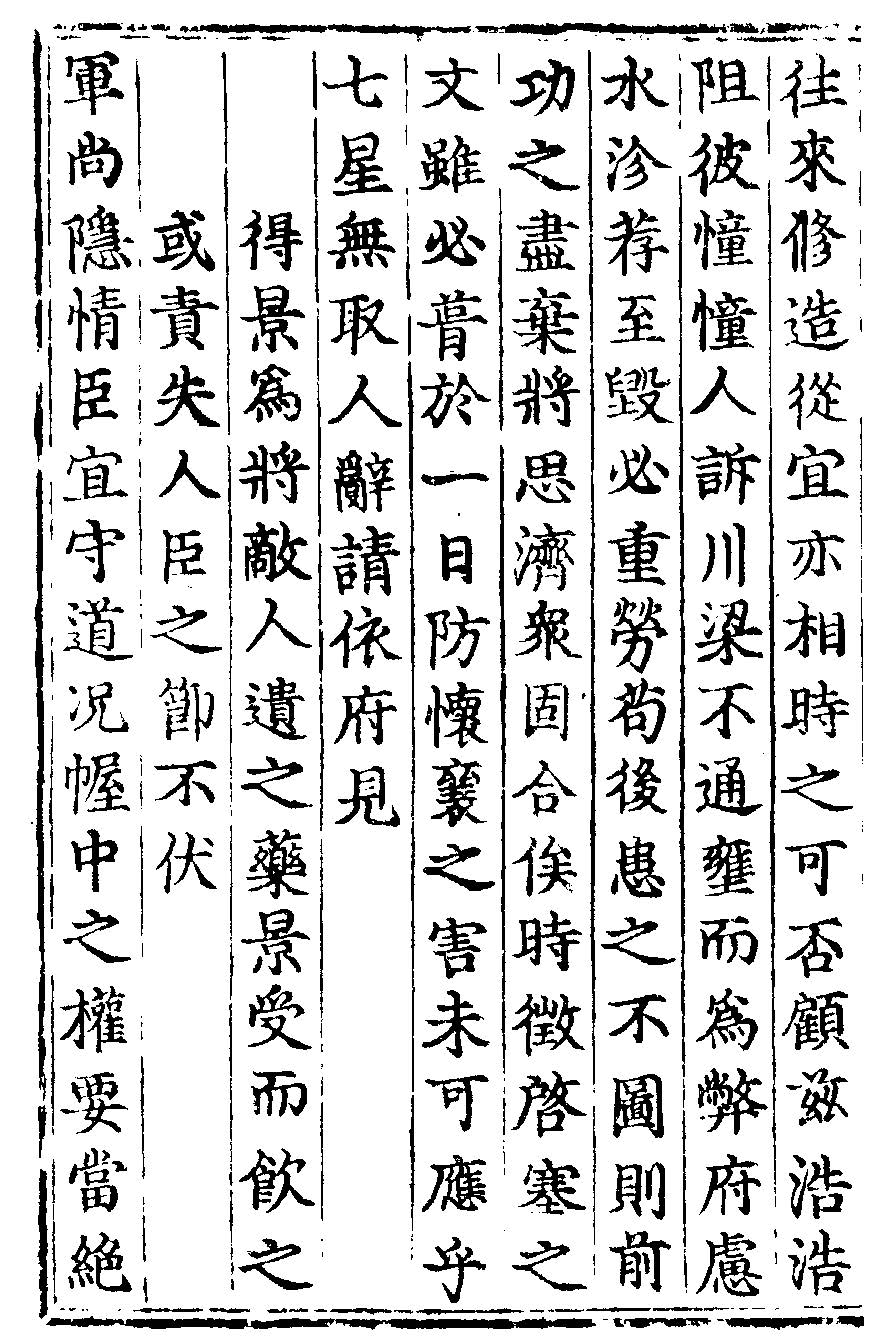 往來修造從宜亦相時之可否顧兹浩浩
阻彼憧憧人訴川梁不通壅而為弊府慮
水沴荐至毀必重勞茍後患之不圖則前
功之盡棄將思濟衆固合俟時徵啓塞之
文雖必葺於一日防懷襄之害未可應乎
七星無取人辭請依府見
得景為將敵人遺之藥景受而飲之
或責失人臣之節不伏
軍尚隱情臣宜守道况幄中之權要當絶